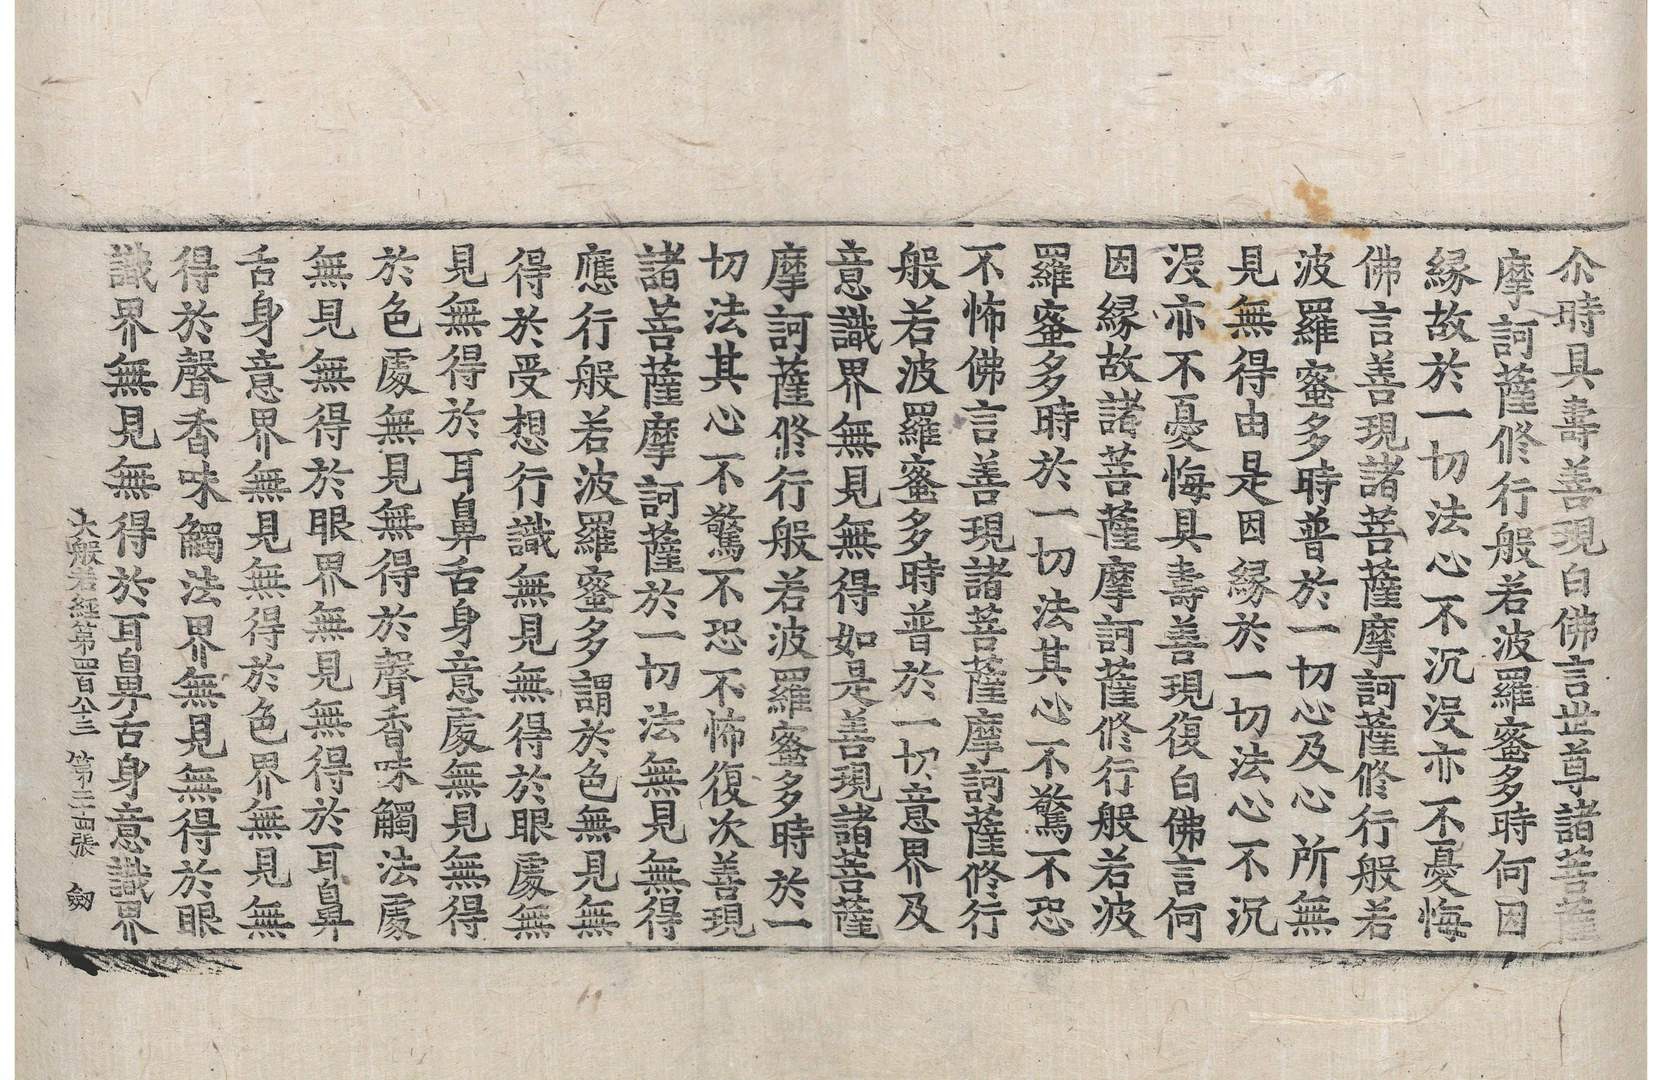 尒時具壽善現白佛言世尊諸菩薩
摩訶薩修行般若波羅蜜多時何因
緣故於一切法心不沉沒亦不憂悔
佛言善現諸菩薩摩訶薩修行般若
波羅蜜多時普於一切心及心所無
見無得由是因緣於一切法心不沉
沒亦不憂悔具壽善現復白佛言何
因緣故諸菩薩摩訶薩修行般若波
羅蜜多時於一切法其心不驚不恐
不怖佛言善現諸菩薩摩訶薩修行
般若波羅蜜多時普於一切意界及
意識界無見無得如是善現諸菩薩
摩訶薩修行般若波羅蜜多時於一
切法其心不驚不恐不怖復次善現
諸菩薩摩訶薩於一切法無見無得
應行般若波羅蜜多謂於色無見無
得於受想行識無見無得於眼處無
見無得於耳鼻舌身意處無見無得
於色處無見無得於聲香味觸法處
無見無得於眼界無見無得於耳鼻
舌身意界無見無得於色界無見無
得於聲香味觸法界無見無得於眼
識界無見無得於耳鼻舌身意識界
大般若經第四百八十二 第二十四張 劒